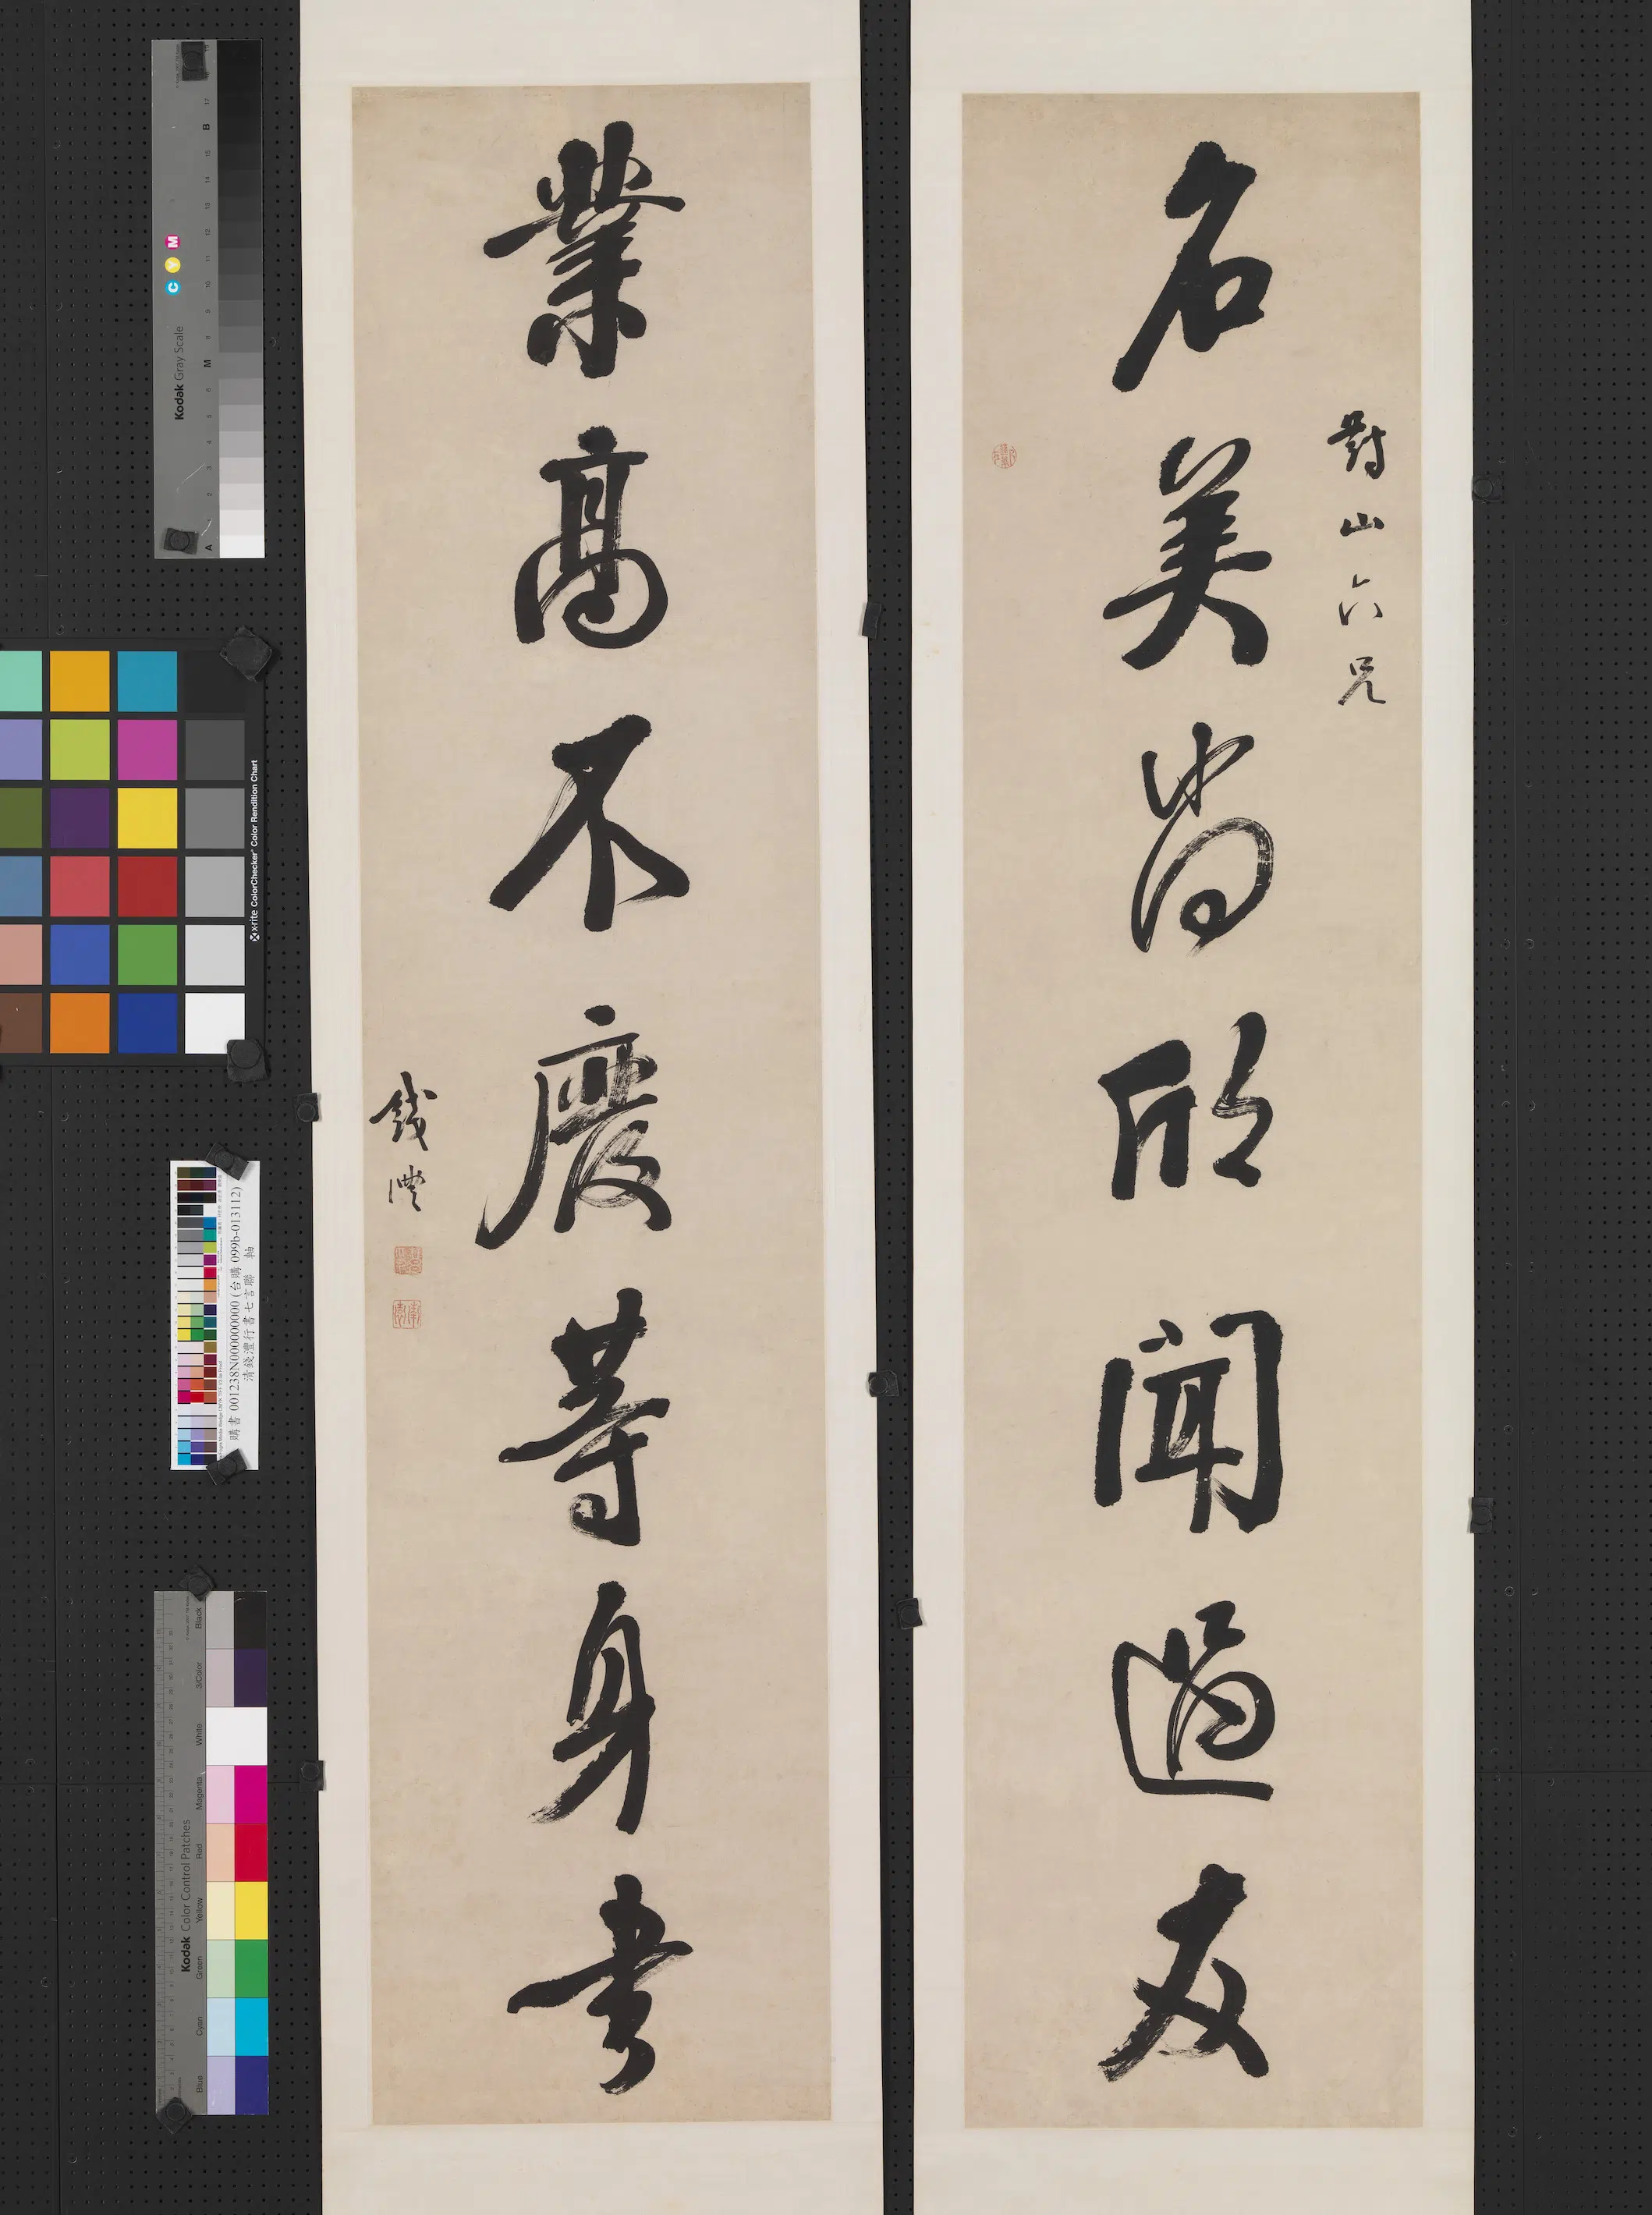 名美尚欣聞過友
對山六兄
業高不廢等身書
錢灃
Kodak Gray Scale
C Y M
A
M
B
x-rite ColorChecker Color Rendition Chart
購書 001238N000000000 (台購 099b-013112)
清錢灃行書七言聯 軸
Kodak Color Control Patches
Blue
Cyan
Green
Yellow
Red
Magenta
White
3/Color
Black